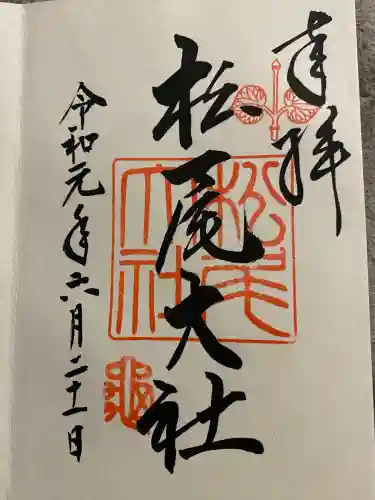 奉拝
松尾大社
松尾大社
令和元年六月二十一日